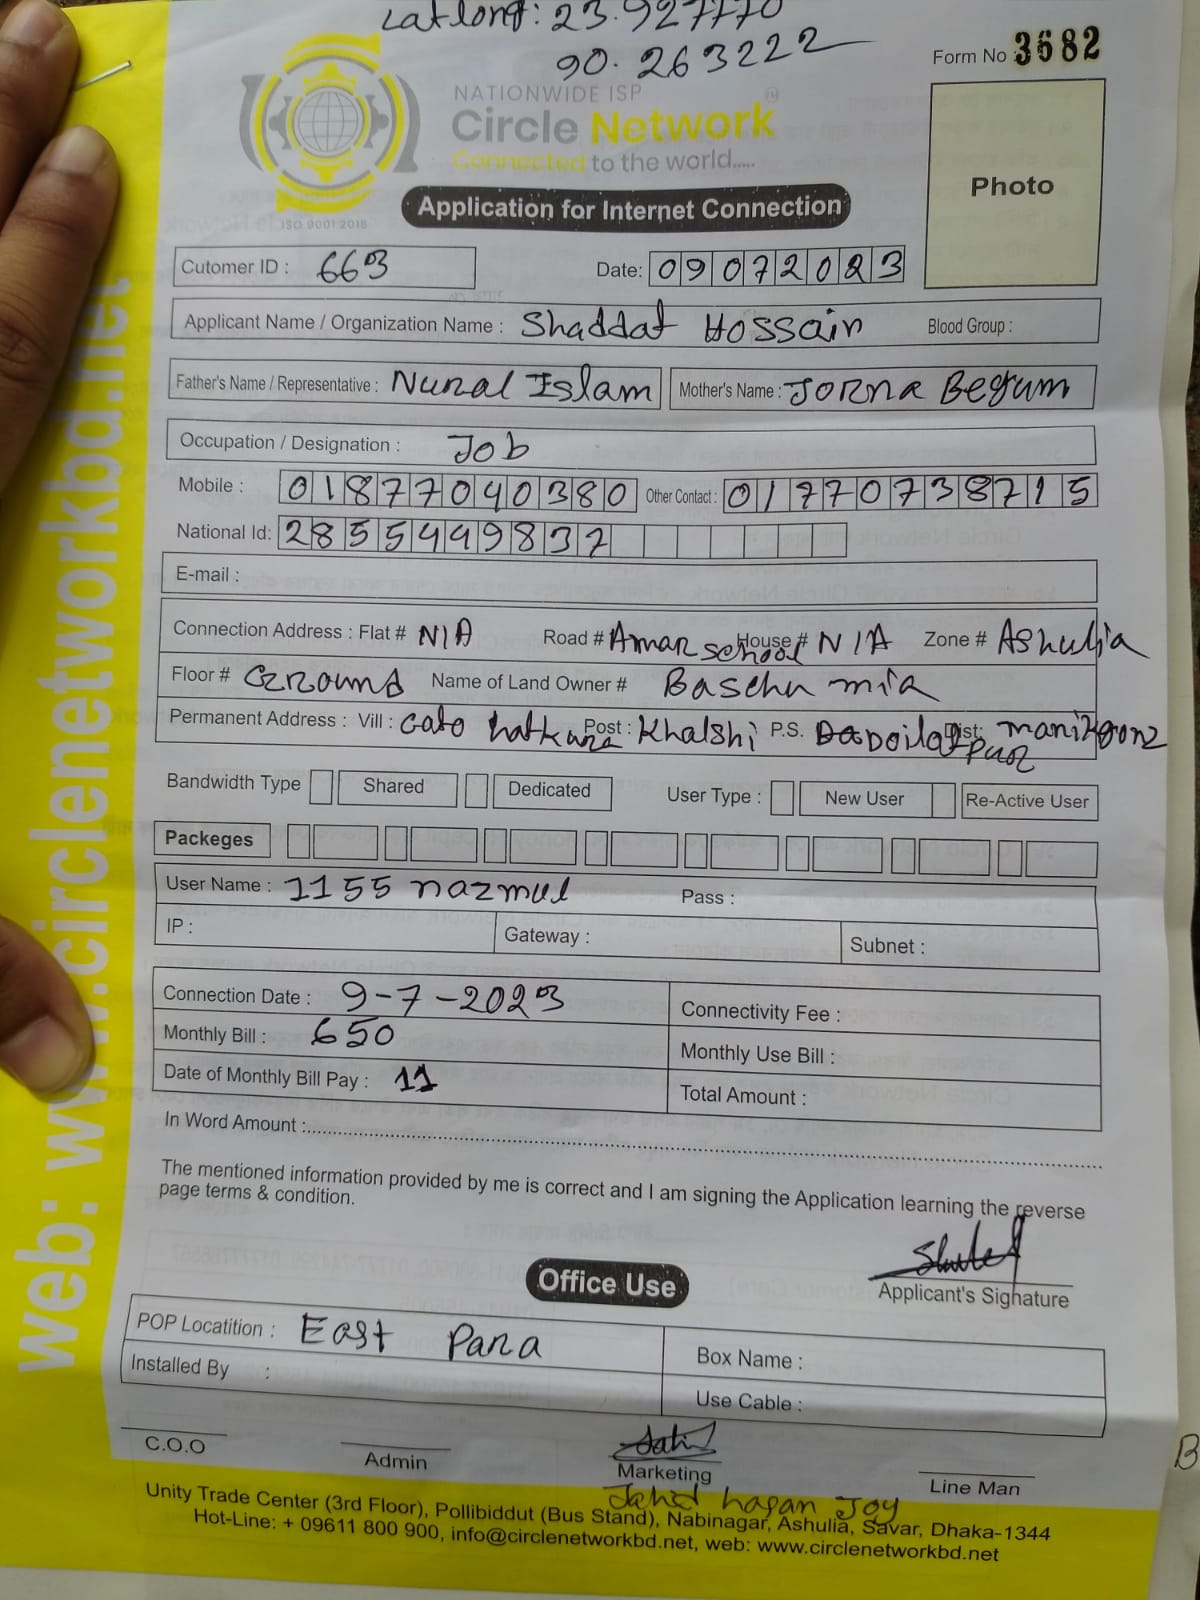 Latlong: 23.927770
90.263222
Form No 3682
NATIONWIDE ISP
Circle Network
TM
Connected to the world.....
ISO 9001:2015
Photo
Application for Internet Connection
Cutomer ID : 663
Date: 09072023
Applicant Name / Organization Name : Shaddat Hossain Blood Group :
Father's Name / Representative : Nural Islam Mother's Name : Jorna Begum
Occupation / Designation : Job
Mobile : 01877040380 Other Contact : 01770738715
National Id: 2855499837
E-mail :
Connection Address : Flat # N/A Road # Aman school House # N/A Zone # Ashulia
Floor # Ground Name of Land Owner # Baschu mia
Permanent Address : Vill : Gato Post : Khalshi P.S. Dist:
Bandwidth Type Shared Dedicated User Type : New User Re-Active User
Packeges
User Name : 1155 nazmul Pass :
IP : Gateway : Subnet :
Connection Date : 9-7-2023 Connectivity Fee :
Monthly Bill : 650 Monthly Use Bill :
Date of Monthly Bill Pay : 11 Total Amount :
In Word Amount :
The mentioned information provided by me is correct and I am signing the Application learning the reverse
page terms & condition.
Applicant's Signature
Office Use
POP Locatition : East Para Box Name :
Installed By : Use Cable :
C.O.O Admin Marketing Line Man
B
Jahid hasan Joy
Unity Trade Center (3rd Floor), Pollibiddut (Bus Stand), Nabinagar, Ashulia, Savar, Dhaka-1344
Hot-Line: + 09611 800 900, info@circlenetworkbd.net, web: www.circlenetworkbd.net
web: www.circlenetworkbd.net